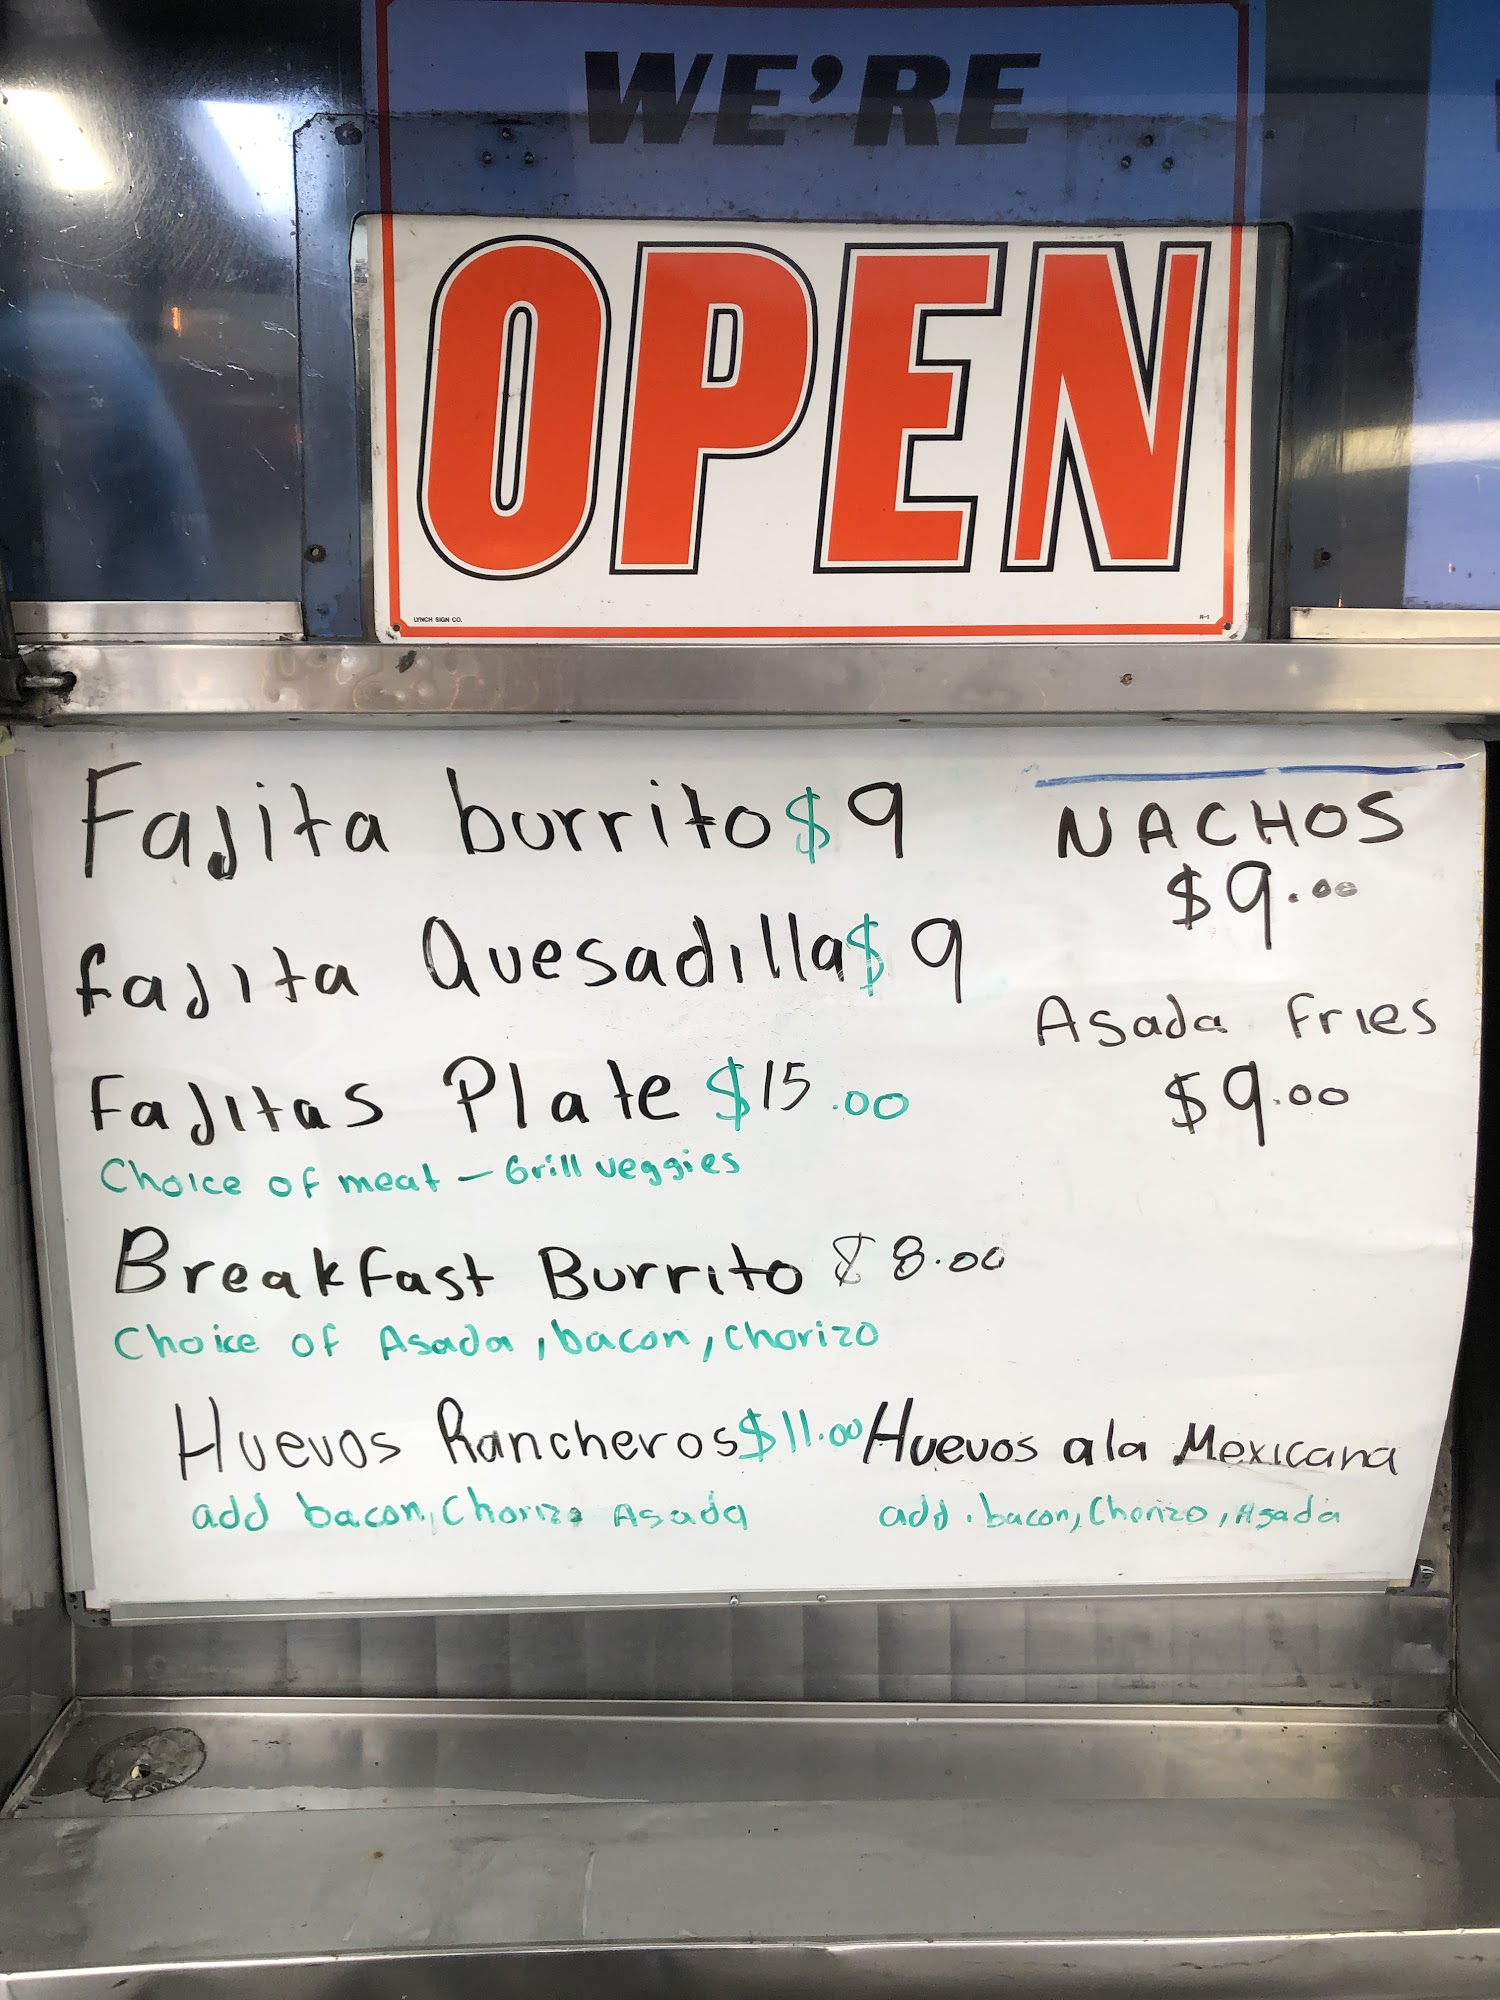 WE'RE
OPEN
LYNCH SIGN CO.
R-1
Fajita burrito $9
fajita Quesadilla $9
Fajitas Plate $15.00
Choice of meat - Grill veggies
Breakfast Burrito $8.00
Choice of Asada, bacon, chorizo
Huevos Rancheros $11.00
add bacon, Chorizo Asada
NACHOS
$9.00
Asada Fries
$9.00
Huevos ala Mexicana
add. bacon, Chorizo, Asada